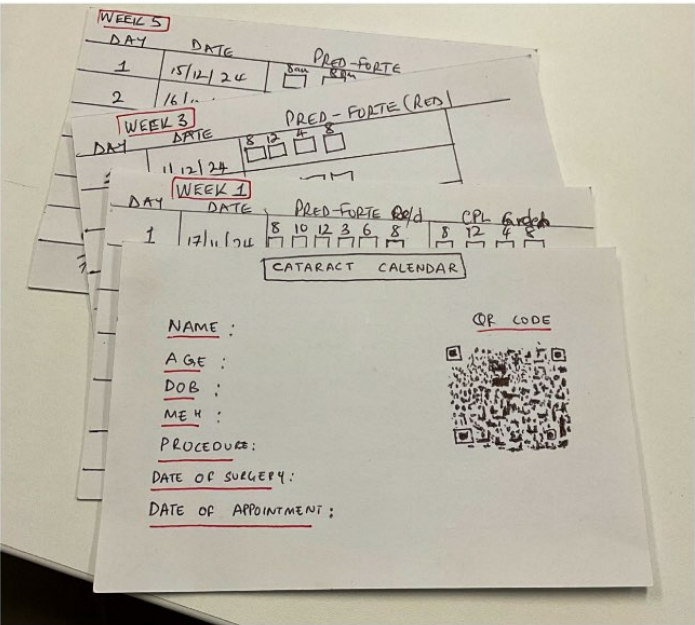 WEEK 5
DAY DATE PRED-FORTE
8am 8pm
1 15/12/24
2 16/
WEEK 3
DAY DATE PRED-FORTE (RED)
8 12 4 8
1/12/24
WEEK 1
DAY DATE PRED-FORTE Red CPL
8 10 12 3 6 8 8 12 4 8
1 17/11/24
CATARACT CALENDAR
NAME :
AGE :
DOB :
MEH :
PROCEDURE:
DATE OF SURGERY:
DATE OF APPOINTMENT :
QR CODE